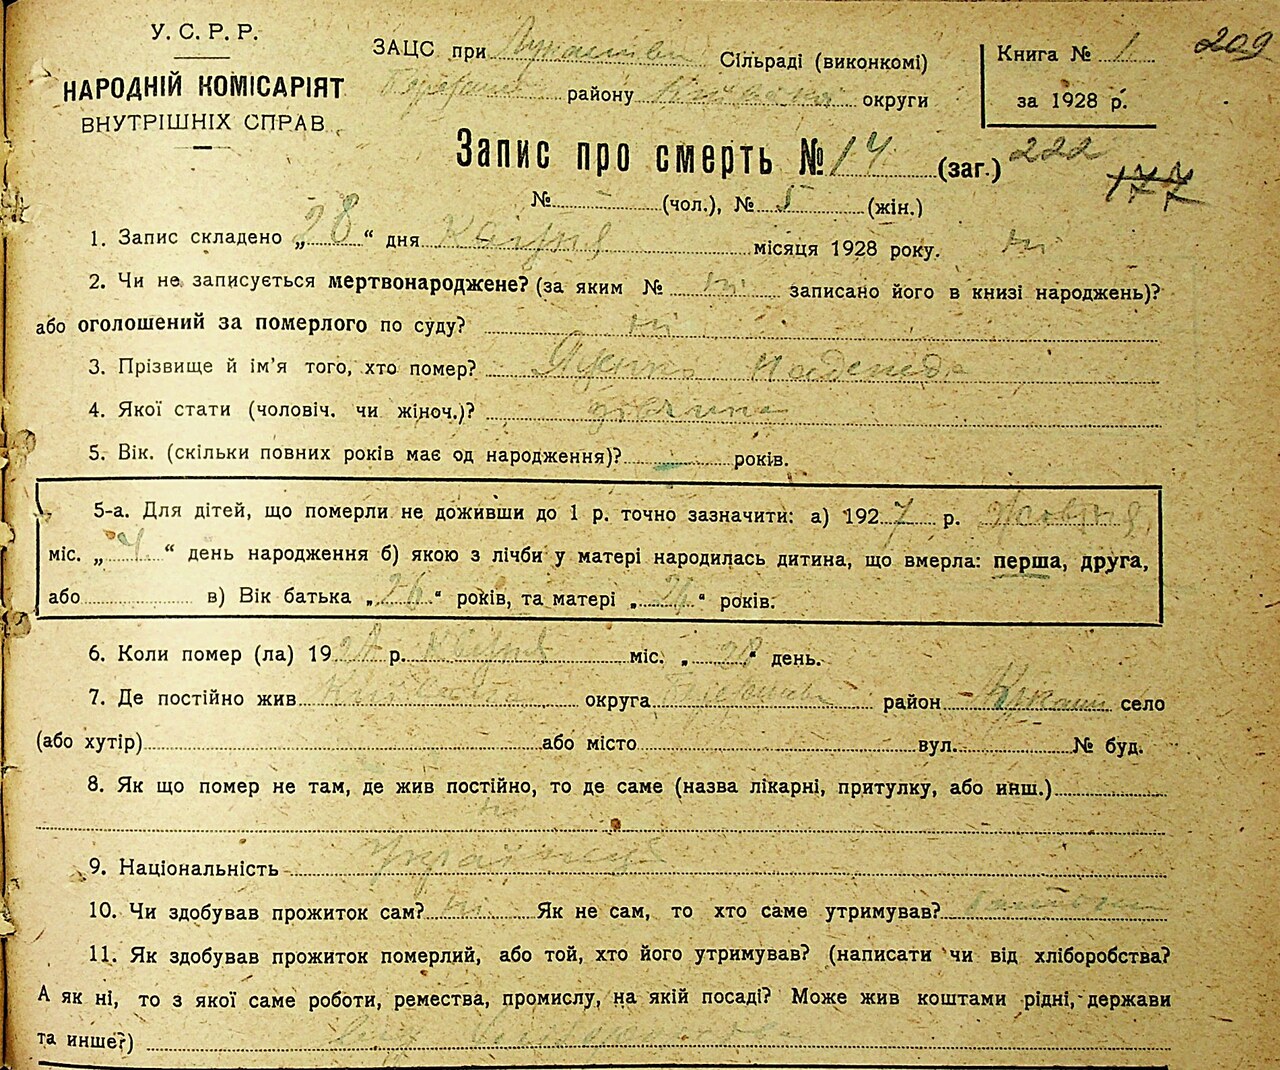 У. С. Р. Р.
НАРОДНІЙ КОМІСАРІЯТ
ВНУТРІШНІХ СПРАВ
ЗАЦС при Сільраді (виконкомі)
району Київської округи
Книга № 1
за 1928 р.
209
Запис про смерть № 14 (заг.) 222
177
№ - (чол.), № 5 (жін.)
1. Запис складено „28“ дня квітня місяця 1928 року. ні
2. Чи не записується мертвонароджене? (за яким № ні записано його в книзі народжень)?
або оголошений за померлого по суду? ні
3. Прізвище й ім'я того, хто помер? Яценко Надежда
4. Якої стати (чоловіч. чи жіноч.)? дівчина
5. Вік. (скільки повних років має од народження)? - років.
5-а. Для дітей, що померли не доживши до 1 р. точно зазначити: а) 1927 р. Жовтня
міс. „4“ день народження б) якою з лічби у матері народилась дитина, що вмерла: перша, друга,
або в) Вік батька „26“ років, та матері „24“ років.
6. Коли помер (ла) 1928 р. Квітня міс. „28“ день.
7. Де постійно жив Київська округа район село
(або хутір) або місто вул. № буд.
8. Як що помер не там, де жив постійно, то де саме (назва лікарні, притулку, або инш.)
ні
9. Національність Українці
10. Чи здобував прожиток сам? ні Як не сам, то хто саме утримував? батьки
11. Як здобував прожиток померлий, або той, хто його утримував? (написати чи від хліборобства?
А як ні, то з якої саме роботи, ремества, промислу, на якій посаді? Може жив коштами рідні, держави
та инше?) хліборобства